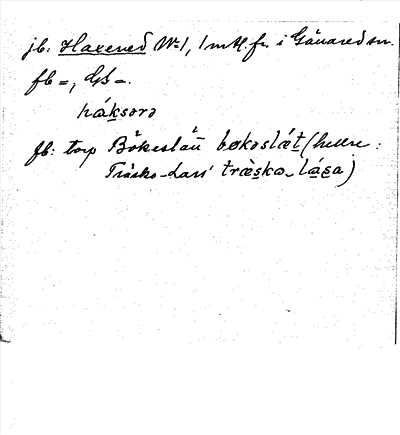 jb: Haxered No 1, 1 mtl. fr. i Gånared sn.
fb =, GB =.
háksərə
fb: torp Bökeslätt bøkəslǽt (heller:
Träsko-Lars' trǽsko_lása)